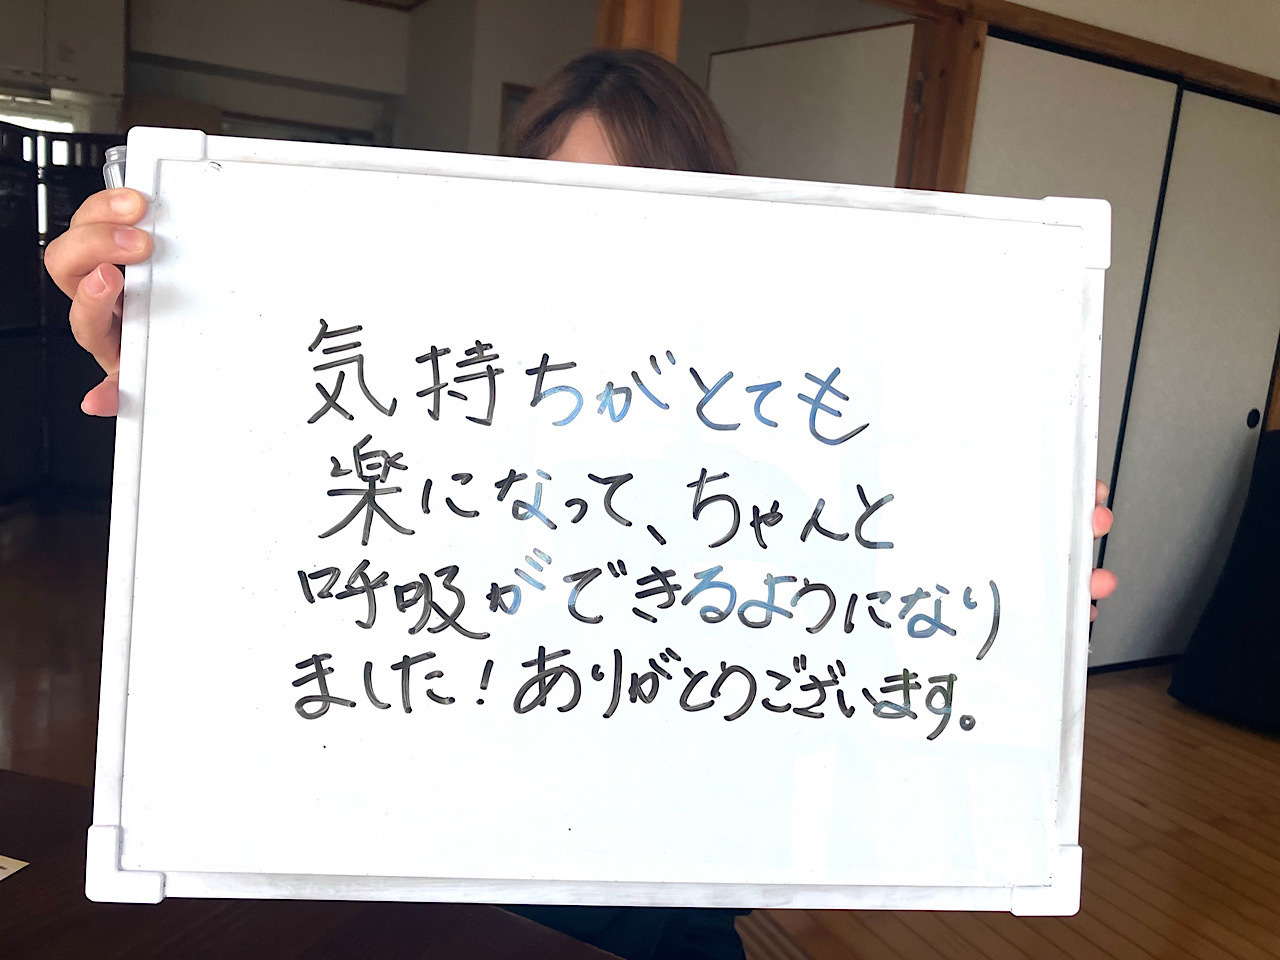 気持ちがとても
楽になって、ちゃんと
呼吸ができるようになり
ました！ありがとうございます。